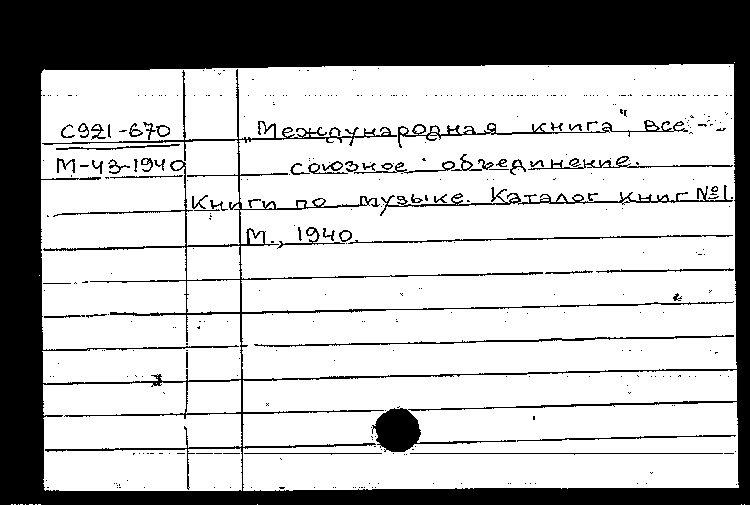 С921-670
М-43-1940
„Международная книга", все-
союзное объединение.
Книги по музыке. Каталог книг №1.
М., 1940.